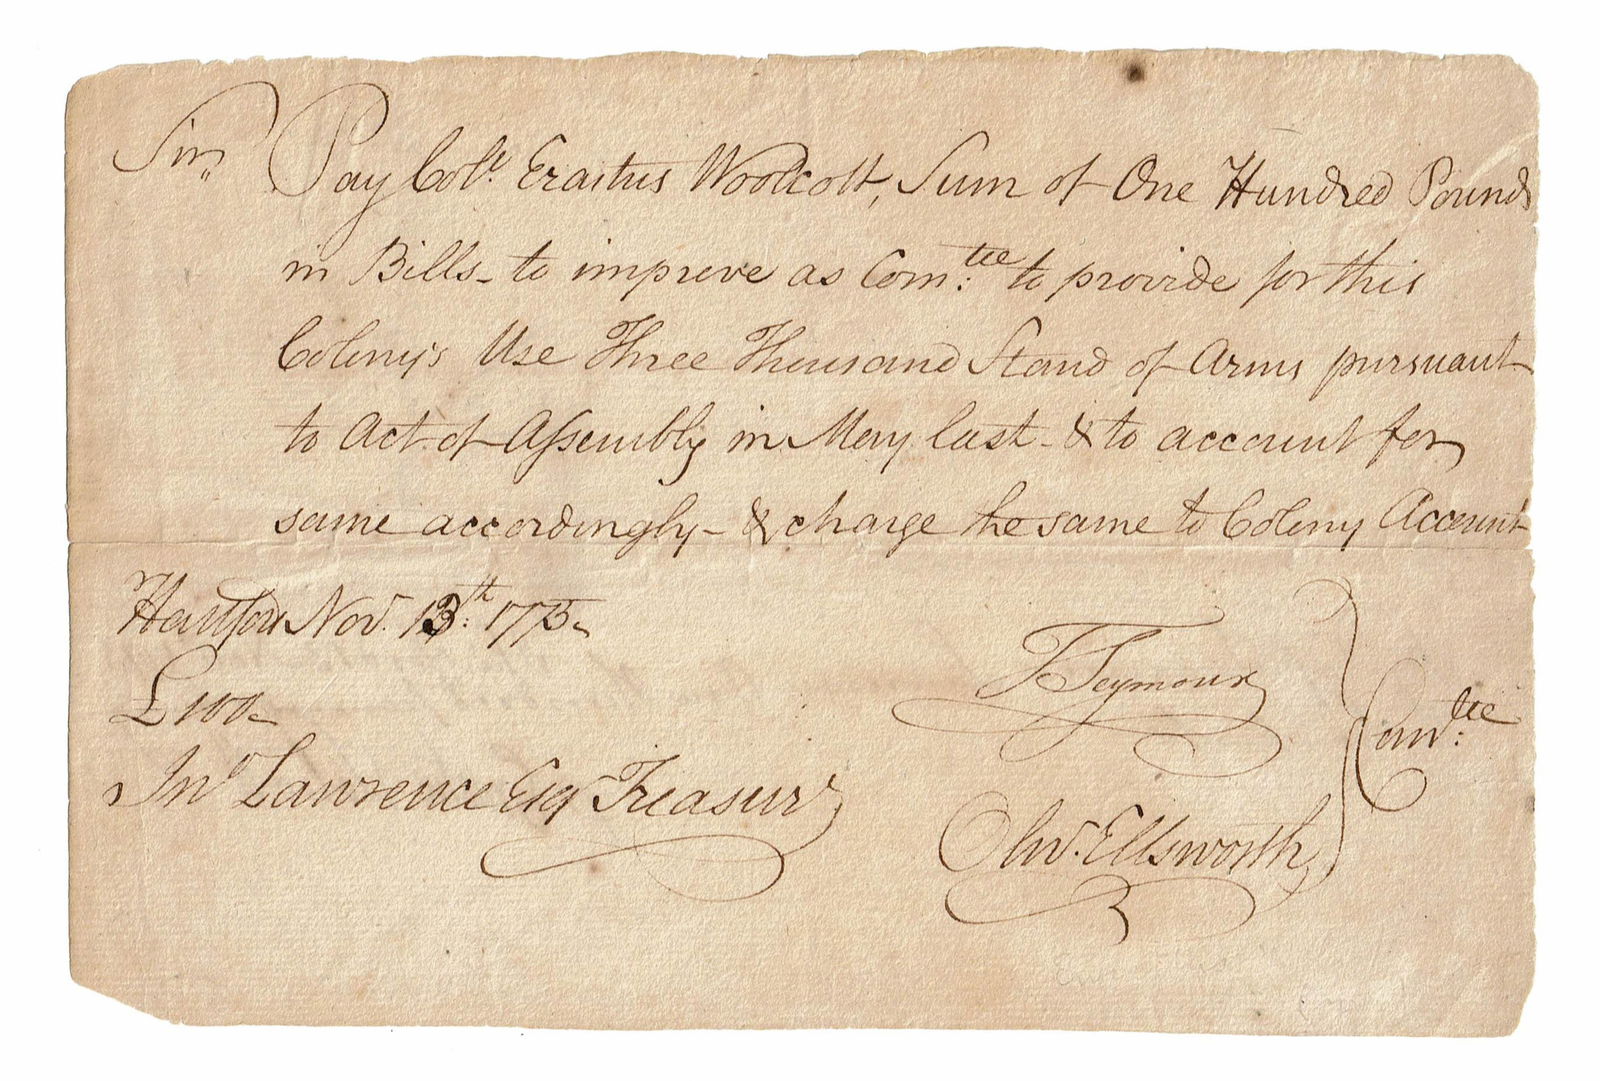 Sir,, Pay Col.º Erastus Woolcott, Sum of One Hundred Pounds
in Bills - to improve as Com:tee to provide for this
Colony's Use Three Thousand Stand of Arms pursuant
to Act of Assembly in May last - & to account for
same accordingly - & charge the same to Colony Account
Hartford Nov.r 13th: 1775 -
£100 -
Jn.o Lawrence Esq Treasur.r
T Seymour
Oliv.r Ellsworth
Com:tee